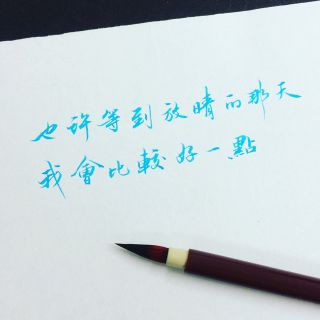 也許等到放晴的那天
我會比較好一點